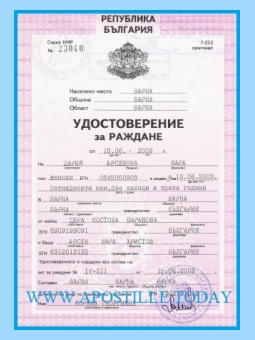 РЕПУБЛИКА
БЪЛГАРИЯ
Серия КМР
№ 23040
Т-232
оригинал
Населено място ВАРНА
Община ВАРНА
Област ВАРНА
УДОСТОВЕРЕНИЕ
за РАЖДАНЕ
от 15.06. 2003 г.
На АРСЕНОВА ВАРА
пол ЖЕНСКИ ЕГН роден на 15.06.2003 г.
петнадесети юни, две хиляди и трета година
в гр. ВАРНА ВАРНА
ВАРНА БЪЛГАРИЯ
от майка КОСТОВА
ЕГН 6909199091 гражданство БЪЛГАРИЯ
и баща АРСЕН ВАРА ХРИСТОВ
ЕГН 6312013120 гражданство БЪЛГАРИЯ
Удостоверението е издадено въз основа на
акт за раждане № IV-211 от 15.06.2003 г.
Съставен ВАРНА ВАРНА ВАРНА
WWW.APOSTILLE.TODAY